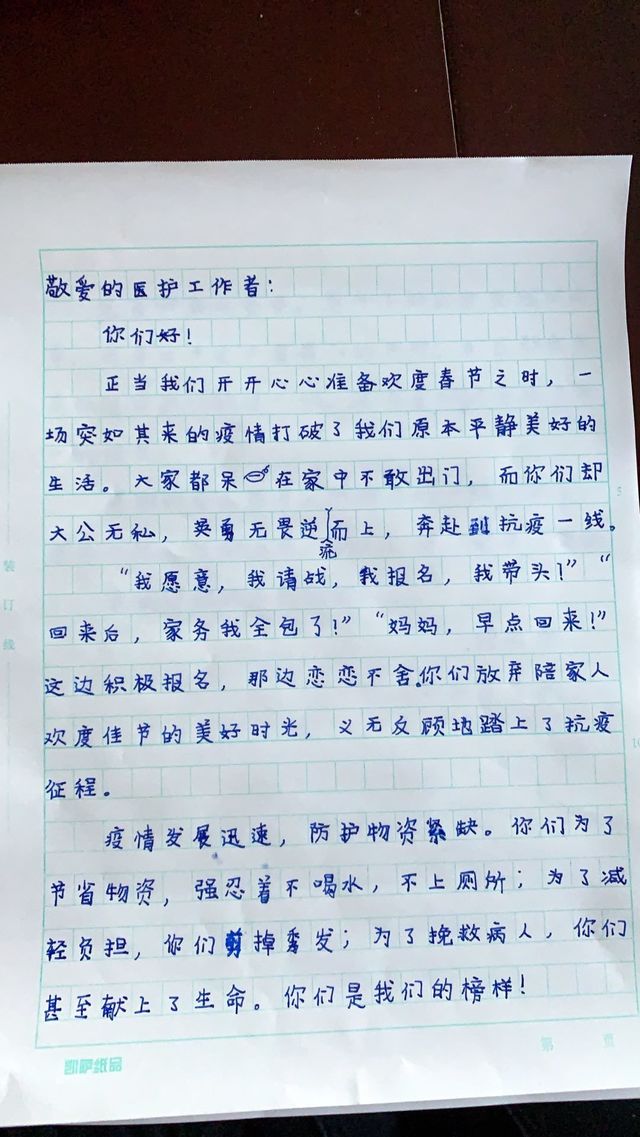 敬爱的医护工作者：
你们好！
正当我们开开心心准备欢度春节之时，一
场突如其来的疫情打破了我们原本平静美好的
生活。大家都呆在家中不敢出门，而你们却
大公无私，英勇无畏逆而上，奔赴到抗疫一线。
“我愿意，我请战，我报名，我带头！”“
回来后，家务我全包了！”“妈妈，早点回来！”
这边积极报名，那边恋恋不舍。你们放弃陪家人
欢度佳节的美好时光，义无反顾地踏上了抗疫
征程。
疫情发展迅速，防护物资紧缺。你们为了
节省物资，强忍着不喝水，不上厕所；为了减
轻负担，你们剪掉秀发；为了挽救病人，你们
甚至献上了生命。你们是我们的榜样！
装订线
5
10
第 页